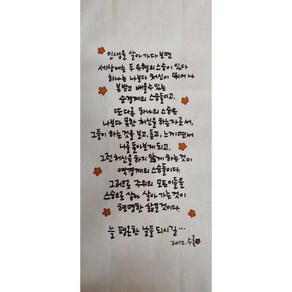 인생을 살아가다 보면
세상에는 두 유형의 스승이 있다
하나는 나보다 처신이 뛰어나
본받고 배울수 있는
순경계의 스승들이고,
또 다른 하나의 스승은
나보다 못한 처신을 하는자로서,
그들이 하는것을 보고, 듣고, 느끼면서
나를 돌아보게 되고,
그런 처신을 하지 않게 하는것이
역경계의 스승들이다.
그러므로 주위의 모든이들을
스승으로 삼아 살아 가는것이
현명한 삶인것이다.
늘 평온한 날들 되시길...
2012.